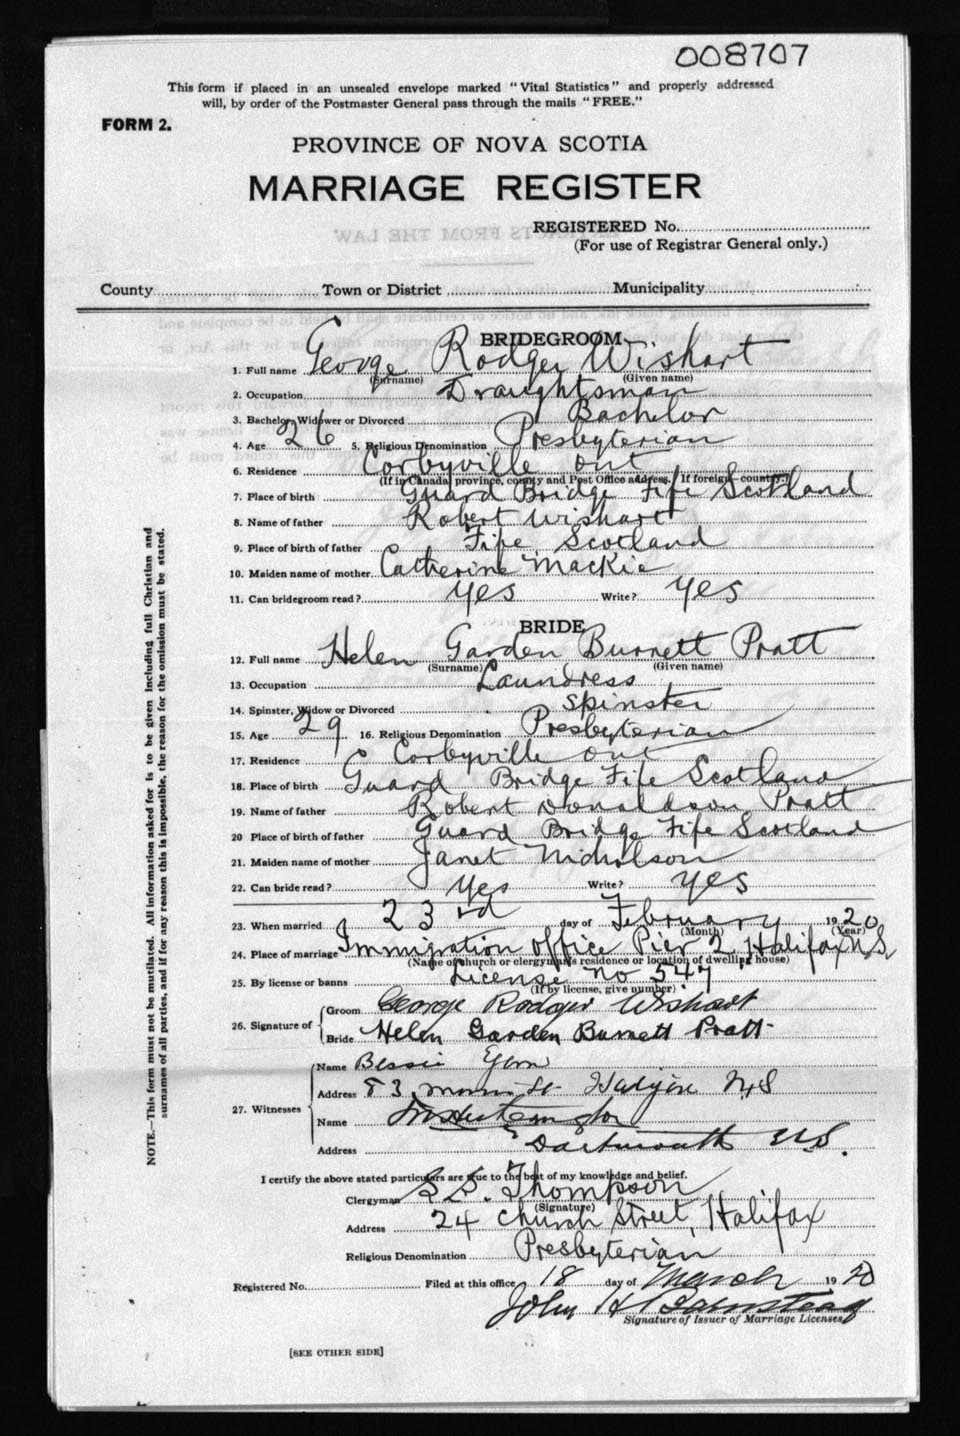 008707
This form if placed in an unsealed envelope marked "Vital Statistics" and properly addressed
will, by order of the Postmaster General pass through the mails "FREE."
FORM 2.
PROVINCE OF NOVA SCOTIA
MARRIAGE REGISTER
REGISTERED No.
(For use of Registrar General only.)
County Town or District Municipality
BRIDEGROOM
1. Full name George Rodger Wishart
(Surname) (Given name)
2. Occupation Draughtsman
3. Bachelor, Widower or Divorced Bachelor
4. Age 26 5. Religious Denomination Presbyterian
6. Residence Corbyville Ont
(If in Canada, province, county and Post Office address. If foreign country.)
7. Place of birth Guard Bridge Fife Scotland
8. Name of father Robert Wishart
9. Place of birth of father Fife Scotland
10. Maiden name of mother Catherine Mackie
11. Can bridegroom read? yes Write? yes
BRIDE
12. Full name Helen Garden Burnett Pratt
(Surname) (Given name)
13. Occupation Laundress
14. Spinster, Widow or Divorced Spinster
15. Age 29 16. Religious Denomination Presbyterian
17. Residence Corbyville Ont
18. Place of birth Guard Bridge Fife Scotland
19. Name of father Robert Donaldson Pratt
20 Place of birth of father Guard Bridge Fife Scotland
21. Maiden name of mother Janet Nicholson
22. Can bride read? yes Write? yes
23. When married 23rd day of February 1920
(Month) (Year)
24. Place of marriage Immigration Office Pier 2 Halifax N.S.
(Name of church or clergyman's residence or location of dwelling house)
25. By license or banns License no 547
(If by license, give number)
26. Signature of Groom George Rodger Wishart
Bride Helen Garden Burnett Pratt
27. Witnesses Name Bessie
Address 83 Morris St Halifax N.S
Name
Address Dartmouth N.S.
I certify the above stated particulars are true to the best of my knowledge and belief.
Clergyman Thompson
(Signature)
Address 24 Church Street, Halifax
Religious Denomination Presbyterian
Registered No. Filed at this office 18 day of March 1920
John H
Signature of Issuer of Marriage Licenses
[SEE OTHER SIDE]
NOTE.—This form must not be mutilated. All information asked for is to be given including full Christian and
surnames of all parties, and if for any reason this is impossible, the reason for the omission must be stated.